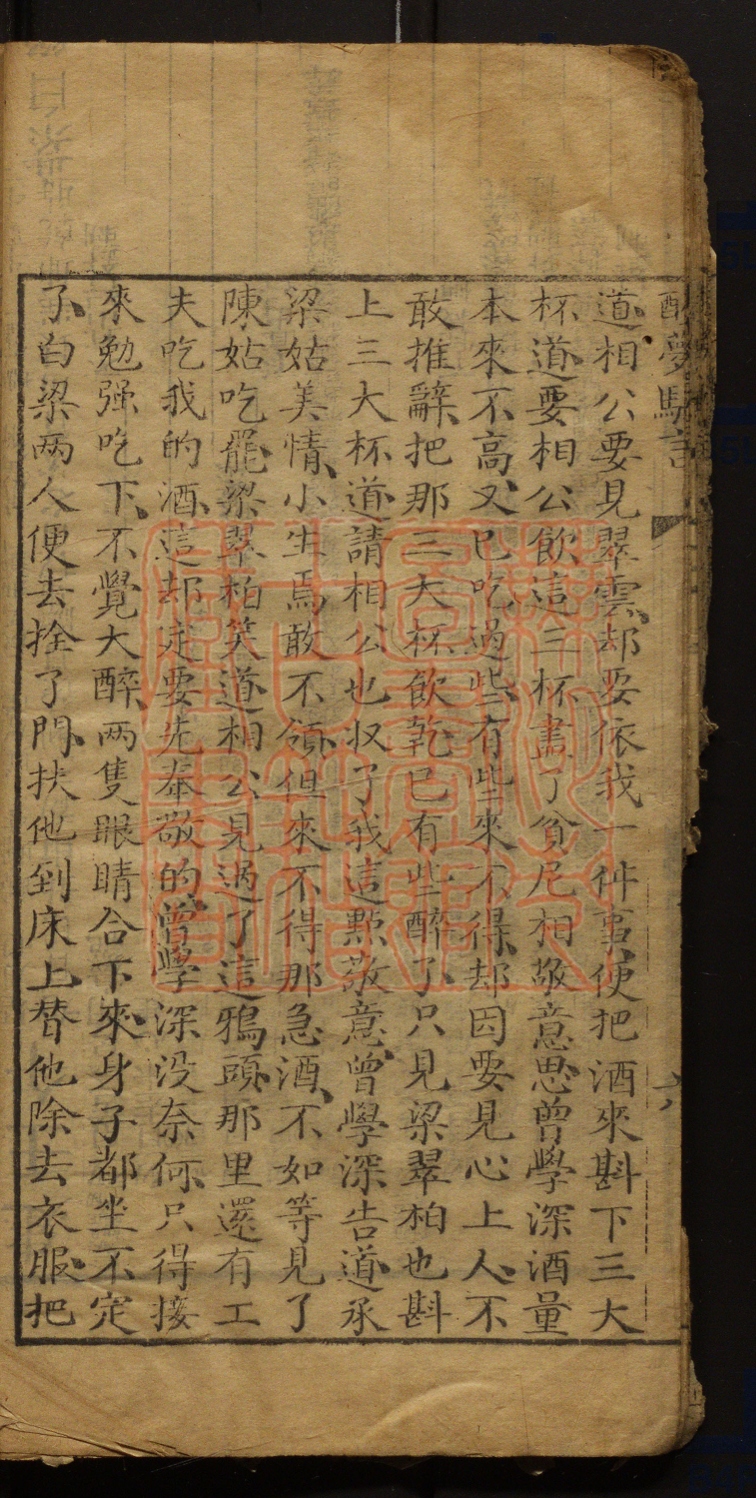 醒夢駢言
六
道相公要見翠雲却要依我一件事便把酒來斟下三大
杯道要相公飲這三杯盡了貧尼相敬意思曾學深酒量
本來不高又已吃過些有些來不得却因要見心上人不
敢推辭把那三大杯飲乾已有些醉了只見梁翠柏也斟
上三大杯道請相公也収了我這㸃敬意曾學深告道承
梁姑美情小生焉敢不領但來不得那急酒不如等見了
陳姑吃罷梁翠柏笑道相公見過了這鴉頭那里還有工
夫吃我的酒這却定要先奉敬的曾學深没奈何只得接
來勉强吃下不覺大醉两隻眼睛合下來身子都坐不定
了白梁两人便去拴了門扶他到床上替他除去衣服把